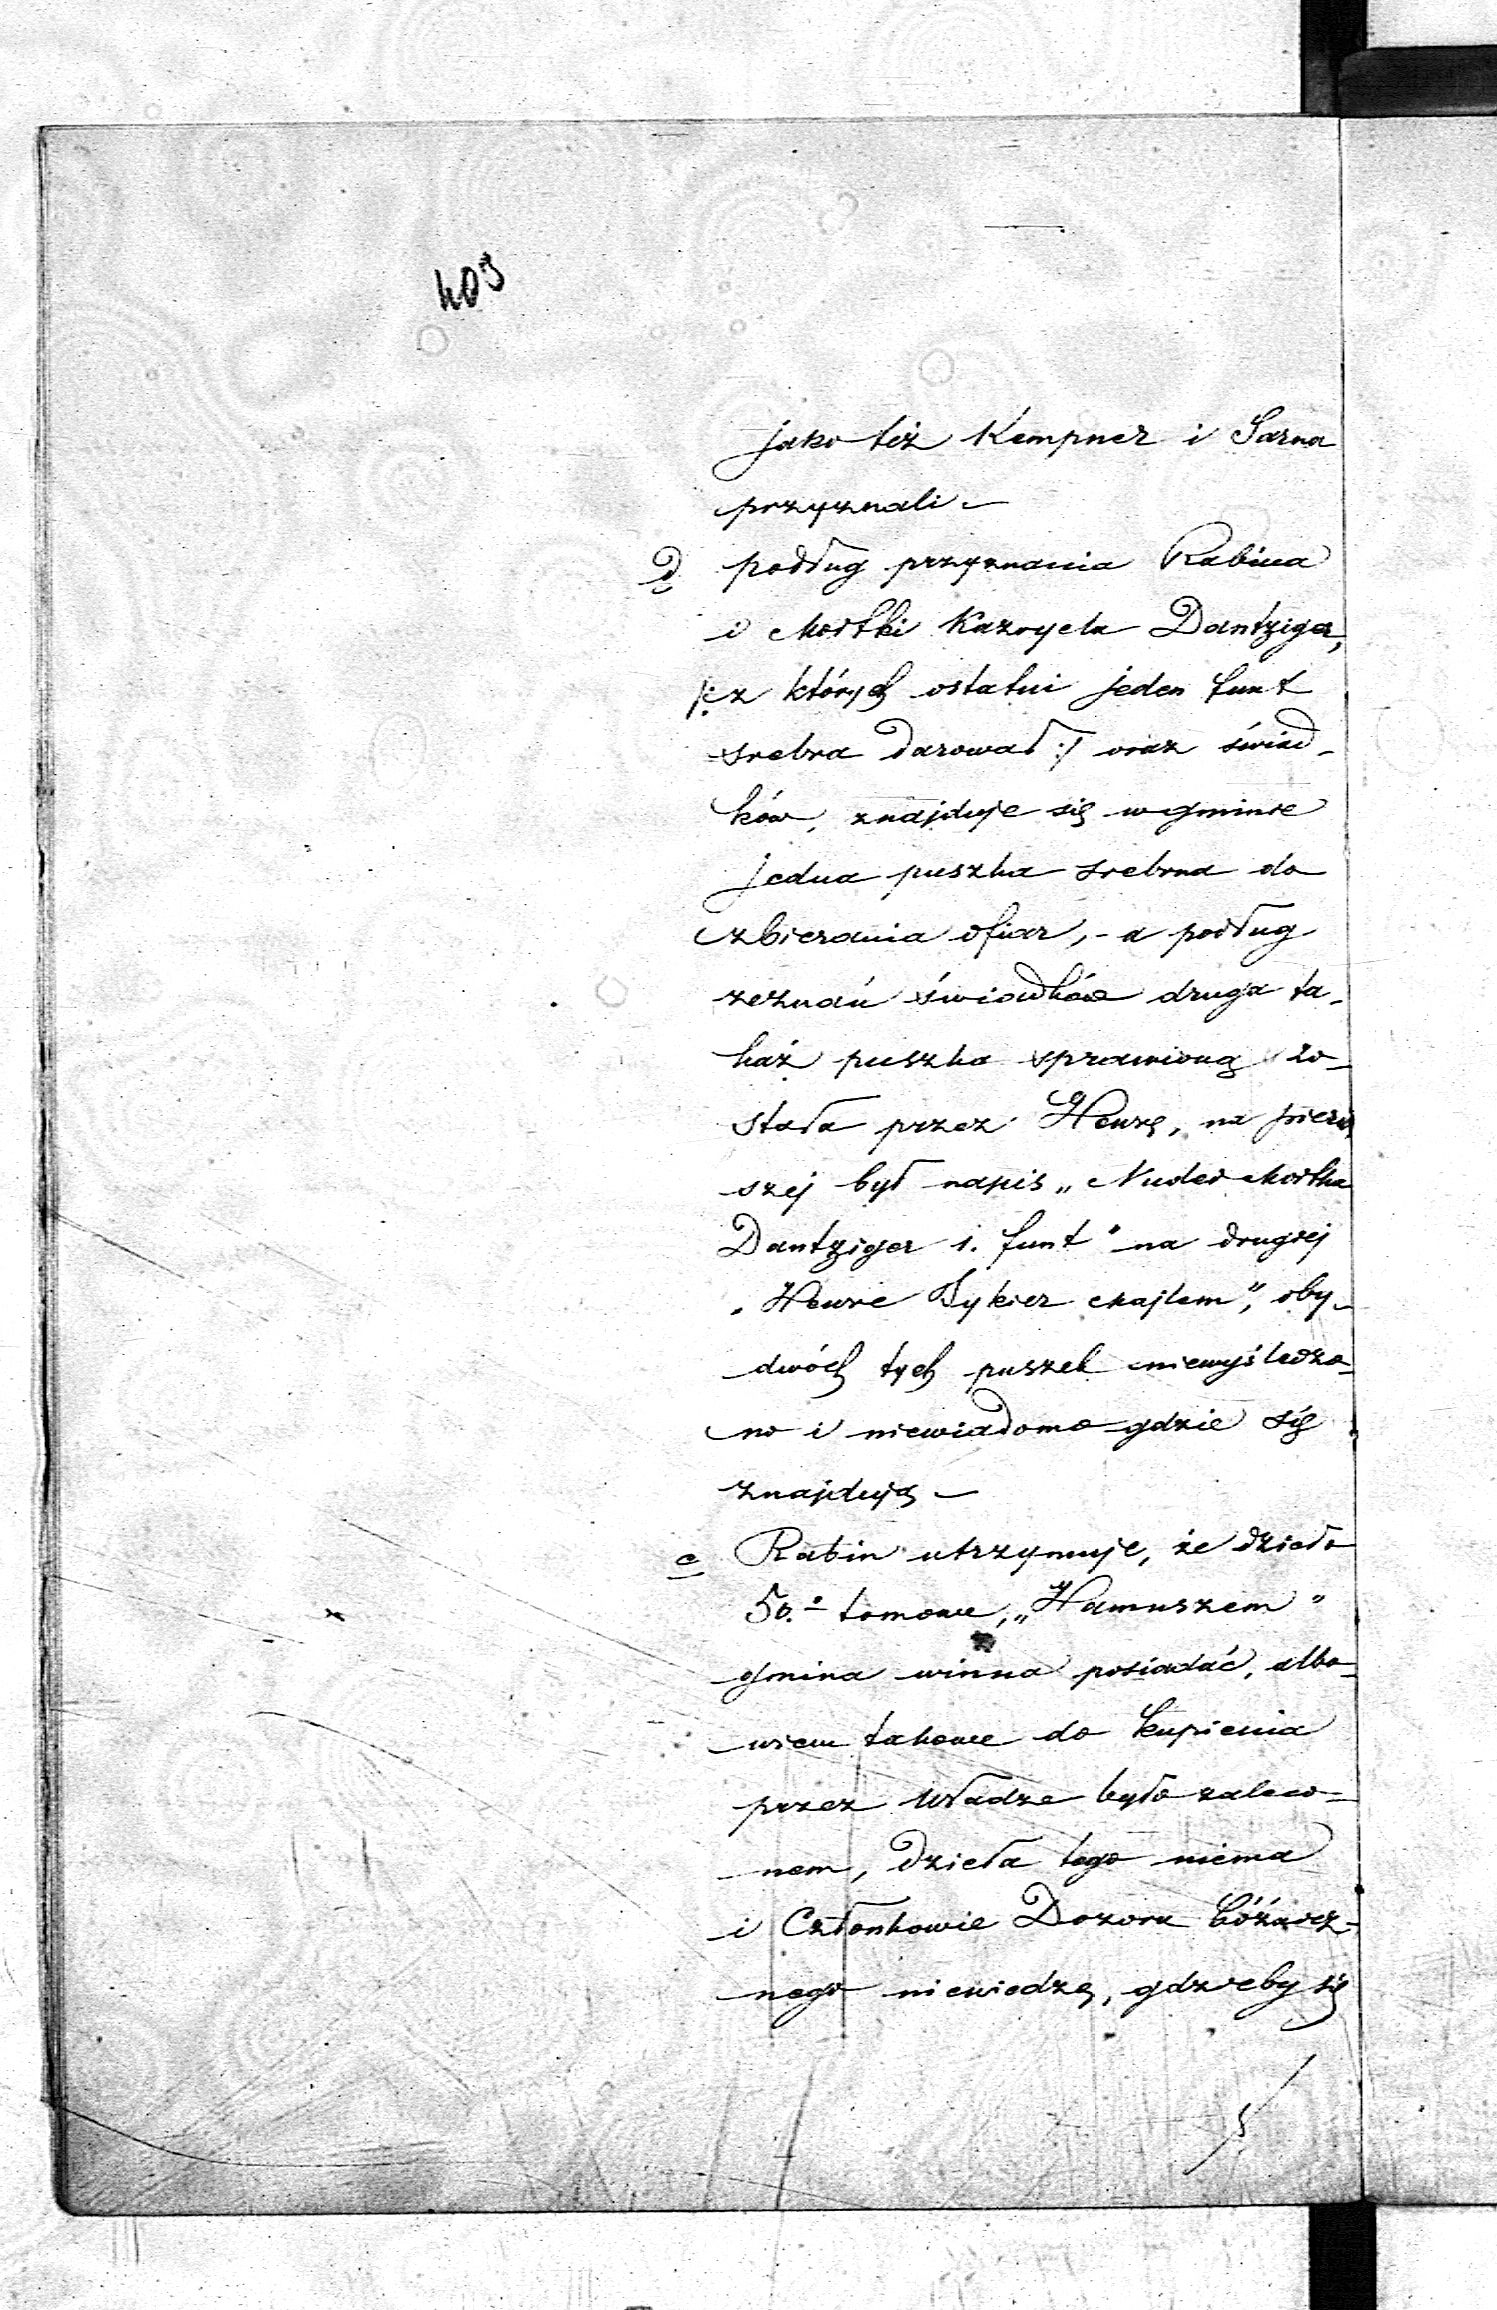 409
jako też Kempner i Sarna
przyznali —
d podług przyznania Rabina
i Mośki Kazryela Dantziger,
/: z których ostatni jeden funt
srebra darował :/ oraz świad-
ków, znajduje się w gminie
jedna puszka srebrna do
zbierania ofiar, - a podług
zeznań świadków druga ta-
każ puszka sprawioną zo-
stała przez Henrę, na pierw
szej był napis „Nuder Mośka
Dantziger 1. funt" na drugiej
„Henre Tykier chajlem", oby-
dwóch tych puszek niewyśledzo-
no i niewiadomo gdzie się
znajdują —
e Rabin utrzymuje, że dzieło
50.o tomowe, „Hamuszem"
gmina winna posiadać, albo-
wiem takowe do kupienia
przez Władze było zaleco-
nem, dzieła tego niema
i Członkowie Dozoru bóżnicz-
nego niewiedzą, gdzieby się